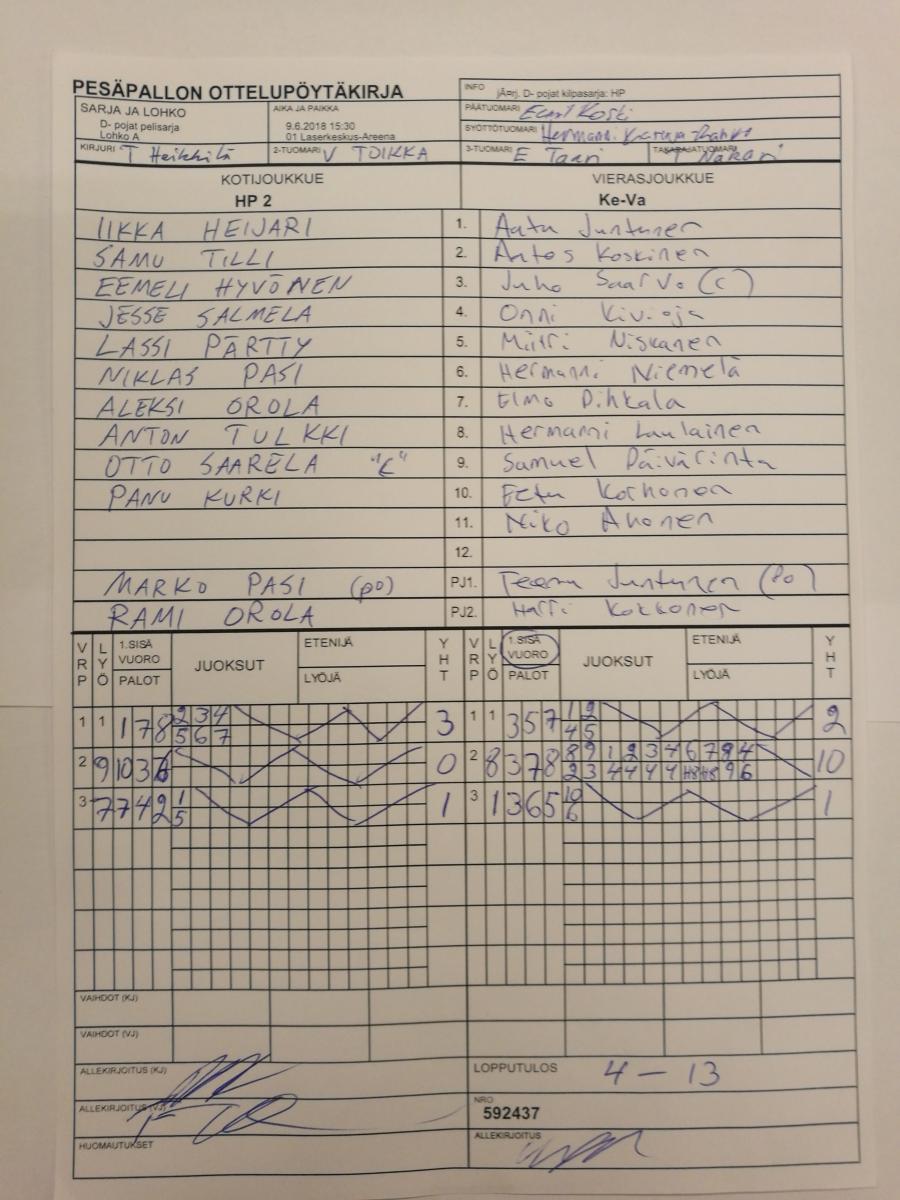 PESÄPALLON OTTELUPÖYTÄKIRJA
INFO jÃ¤rj. D- pojat kilpasarja: HP
SARJA JA LOHKO
D- pojat pelisarja
Lohko A
AIKA JA PAIKKA
9.6.2018 15:30
01 Laserkeskus-Areena
PÄÄTUOMARI Koski
SYÖTTÖTUOMARI Hermanni
KIRJURI T Heikkilä
2-TUOMARI V TOIKKA
3-TUOMARI E
TAKARAJATUOMARI
KOTIJOUKKUE VIERASJOUKKUE
HP 2 Ke-Va
IIKKA HEIJARI 1. Aatu Juntunen
SAMU TILLI 2. Antos Koskinen
EEMELI HYVÖNEN 3. Juho Saarvo (C)
JESSE SALMELA 4. Onni Kivioja
LASSI PÄRTTY 5. Miitri Niskanen
NIKLAS PASI 6. Hermanni Niemelä
ALEKSI OROLA 7. Elmo Pihkala
ANTON TULKKI 8. Hermanni Laulainen
OTTO SAARELA "C" 9. Samuel Päivärinta
PANU KURKI 10. Eetu Korhonen
11. Niko Ahonen
12.
MARKO PASI (po) PJ1. Teemu Juntunen (Po)
RAMI OROLA PJ2. Harri Kokkonen
VRP LYÖ 1.SISÄ VUORO PALOT JUOKSUT ETENIJÄ LYÖJÄ YHT VRP LYÖ 1.SISÄ VUORO PALOT JUOKSUT ETENIJÄ LYÖJÄ YHT
1 1 1 7 8 2 3 4 3 1 1 3 5 7 1 2 2
5 6 7 4 5
2 9 10 3 0 2 8 3 7 8 8 9 1 2 3 4 6 7 8 4 10
2 3 4 4 4 4 9 6
3 7 7 4 2 1 1 3 1 3 6 5 10 1
5 6
VAIHDOT (KJ)
VAIHDOT (VJ)
ALLEKIRJOITUS (KJ)
LOPPUTULOS 4 – 13
ALLEKIRJOITUS (VJ)
NRO
592437
HUOMAUTUKSET
ALLEKIRJOITUS